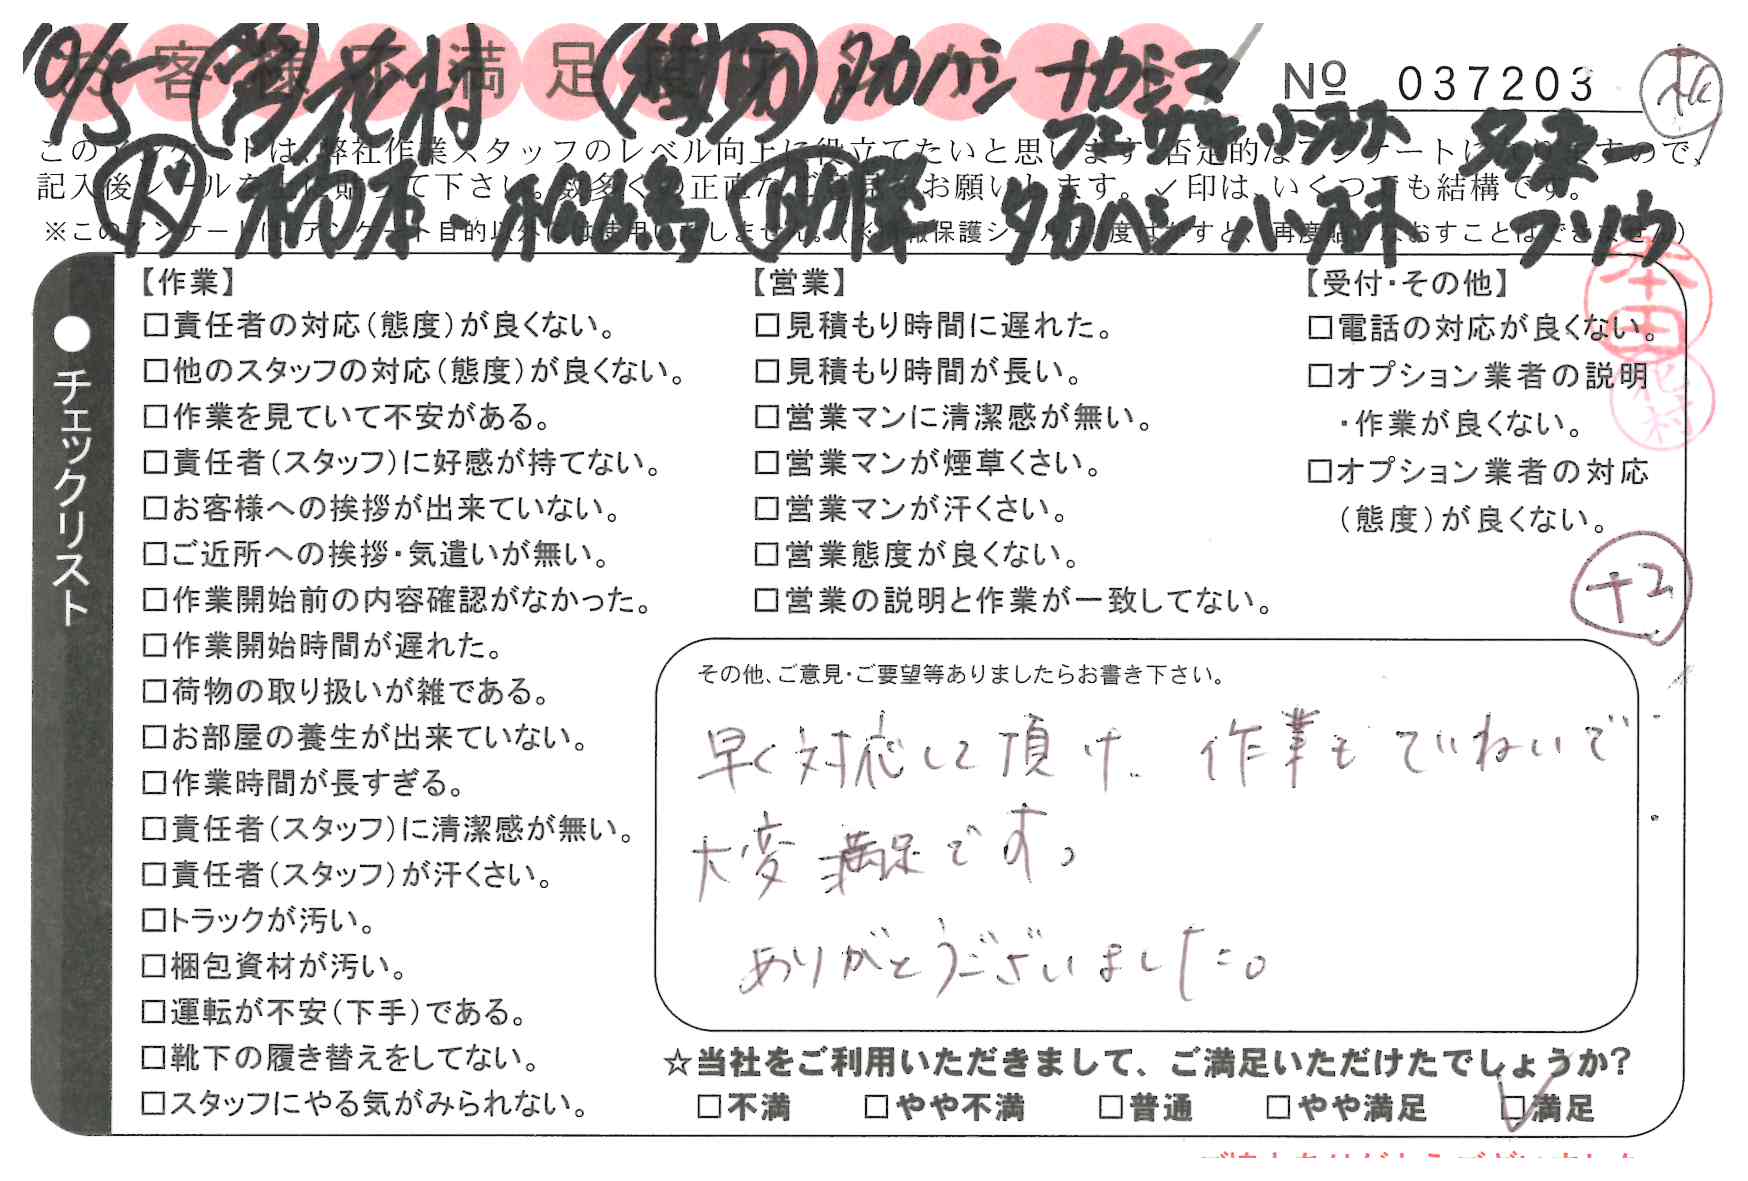 お客様不満足度アンケート
№ 037203
10/5 営 花村 補助 タカハシ ナカシマ
人 橋本・松嶋 助 タカハシ 小林 フソウ
このアンケートは、弊社作業スタッフのレベル向上に役立てたいと思います。否定的なアンケートになりますので、
記入後シールを貼って下さい。数多くの正直なご意見をお願いします。✓印は、いくつでも結構です。
※このアンケートは、アンケート目的以外には使用いたしません。(※情報保護シールは1度はがすと、再度貼りなおすことはできません)
本田
花村
●チェックリスト
【作業】
□責任者の対応(態度)が良くない。
□他のスタッフの対応(態度)が良くない。
□作業を見ていて不安がある。
□責任者(スタッフ)に好感が持てない。
□お客様への挨拶が出来ていない。
□ご近所への挨拶・気遣いが無い。
□作業開始前の内容確認がなかった。
□作業開始時間が遅れた。
□荷物の取り扱いが雑である。
□お部屋の養生が出来ていない。
□作業時間が長すぎる。
□責任者(スタッフ)に清潔感が無い。
□責任者(スタッフ)が汗くさい。
□トラックが汚い。
□梱包資材が汚い。
□運転が不安(下手)である。
□靴下の履き替えをしてない。
□スタッフにやる気がみられない。
【営業】
□見積もり時間に遅れた。
□見積もり時間が長い。
□営業マンに清潔感が無い。
□営業マンが煙草くさい。
□営業マンが汗くさい。
□営業態度が良くない。
□営業の説明と作業が一致してない。
【受付・その他】
□電話の対応が良くない。
□オプション業者の説明
・作業が良くない。
□オプション業者の対応
(態度)が良くない。
+2
その他、ご意見・ご要望等ありましたらお書き下さい。
早く対応して頂け、作業もていねいで
大変満足です。
ありがとうございました。
☆当社をご利用いただきまして、ご満足いただけたでしょうか?
□不満 □やや不満 □普通 □やや満足 ☑満足